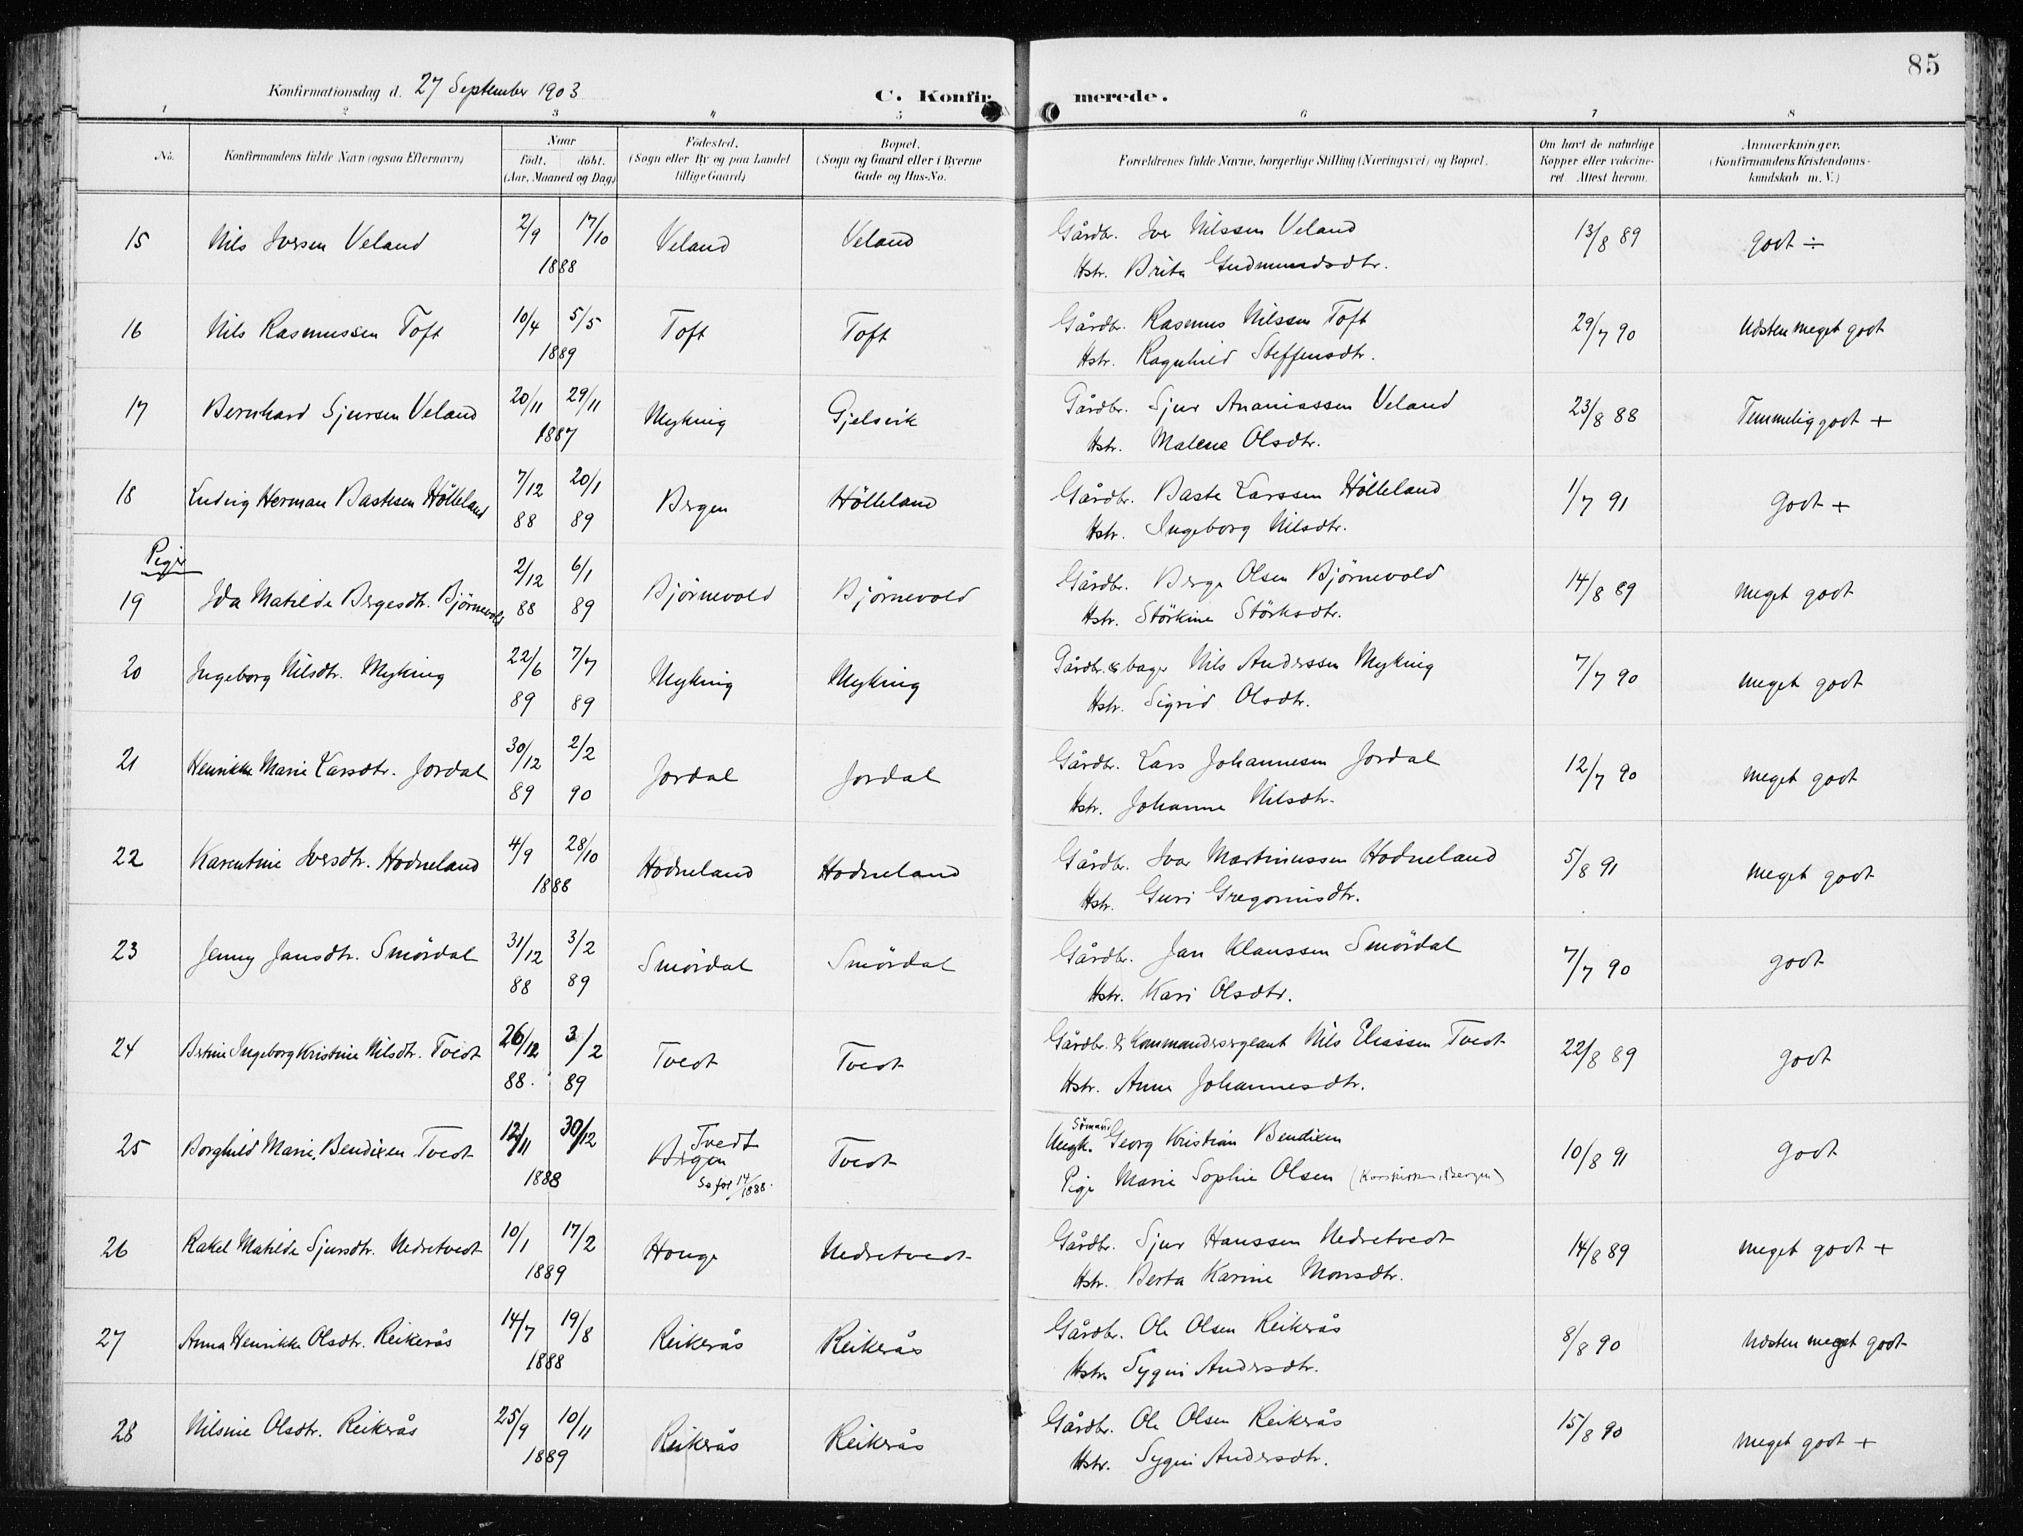 85
Konfirmationsdag d. 27 September 1903
C. Konfirmerede.
1 2 3 4 5 6 7 8
No. Konfirmandens fulde Navn (ogsaa Efternavn) Naar født. døbt. (Aar, Maaned og Dag) Fødested. (Sogn eller By og paa Landet tillige Gaard) Bopæl. (Sogn og Gaard eller i Byerne Gade og Hus-No. Forældrenes fulde Navne, borgerlige Stilling (Næringsvei) og Bopæl. Om havt de naturlige Kopper eller vaccineret. Attest herom. Anmærkninger. (Konfirmandens Kristendomskundskab m. V.)
15 Nils Iversen Veland 2/9 17/10 1888 Veland Veland Gårdbr. Iver Nilssen Veland 13/8 89 godt ÷
Hstr. Brita Gudmundsdtr.
16 Nils Rasmussen Toft 10/4 5/5 1889 Toft Toft Gårdbr. Rasmus Nilssen Toft 29/7 90 Næsten meget godt
Hstr. Ragnhild Steffensdtr.
17 Bernhard Sjursen Veland 20/11 29/11 1887 Myking Gjelsvik Gårdbr. Sjur Ananiassen Veland 23/8 88 Temmelig godt +
Hstr. Malene Olsdtr.
18 Ludvig Herman Bastesen Hölleland 7/12 88 20/1 89 Bergen Hölleland Gårdbr. Baste Larssen Hölleland 1/7 91 Godt +
Hstr. Ingeborg Nilsdtr.
Piger
19 Ida Matilde Bergesdtr. Bjørnevold 2/12 88 6/1 89 Bjørnevold Bjørnevold Gårdbr. Berge Olsen Bjørnevold 14/8 89 meget godt
Hstr. Störkine Störksdtr.
20 Ingeborg Nilsdtr. Myking 22/6 89 7/7 89 Myking Myking Gårdbr. & bager Nils Anderssen Myking 7/7 90 meget godt
Hstr. Sigrid Olsdtr.
21 Henrikke Marie Larsdtr. Jordal 30/12 89 2/2 90 Jordal Jordal Gårdbr. Lars Johannesen Jordal 12/7 90 meget godt
Hstr. Johanne Nilsdtr.
22 Karentine Iversdtr. Hodneland 4/9 28/10 1888 Hodneland Hodneland Gårdbr. Ivar Martinussen Hodneland 5/8 91 meget godt
Hstr. Guri Gregoriusdtr.
23 Jenny Jansdtr. Smördal 31/12 88 3/2 89 Smördal Smördal Gårdbr. Jan Klaussen Smördal 7/7 90 godt
Hstr. Kari Olsdtr.
24 Bertine Ingeborg Kristine Nilsdtr. Tvedt 26/12 88. 3/2 89 Tvedt Tvedt Gårdbr. & Kommandersergeant Nils Eliassen Tvedt 22/8 89 godt
Hstr. Anna Johannesdtr.
25 Borghild Marie Bendixen Tvedt 12/11 30/12 1888 Bergen Tvedt Se før 14/1888. Tvedt Ungk. Sömand Georg Kristian Bendixen 10/8 91 godt
Pige Marie Sophie Olsen (Korskirken, Bergen)
26 Rakel Matilde Sjursdtr. Nedretvedt 10/1 17/2 1889 Houge Nedretvedt Gårdbr. Sjur Hanssen Nedretvedt 14/8 89 meget godt +
Hstr. Berta Karine Monsdtr.
27 Anna Henrikke Olsdtr. Reikerås 14/7 19/8 1888 Reikerås Reikerås Gårdbr. Ole Olsen Reikerås 8/8 90 Næsten meget godt
Hstr. Sygni Andersdtr.
28 Nilsine Olsdtr. Reikerås 25/9 10/11 1889 Reikerås Reikerås Gårdbr. Ole Olsen Reikerås 15/8 90 meget godt +
Hstr. Sygni Andersdtr.